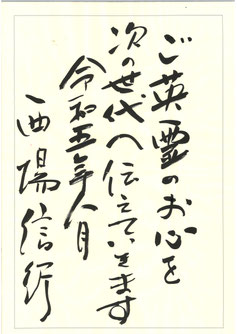 ご英霊のお心を
次の世代へ伝えていきます
令和五年八月
西場信行